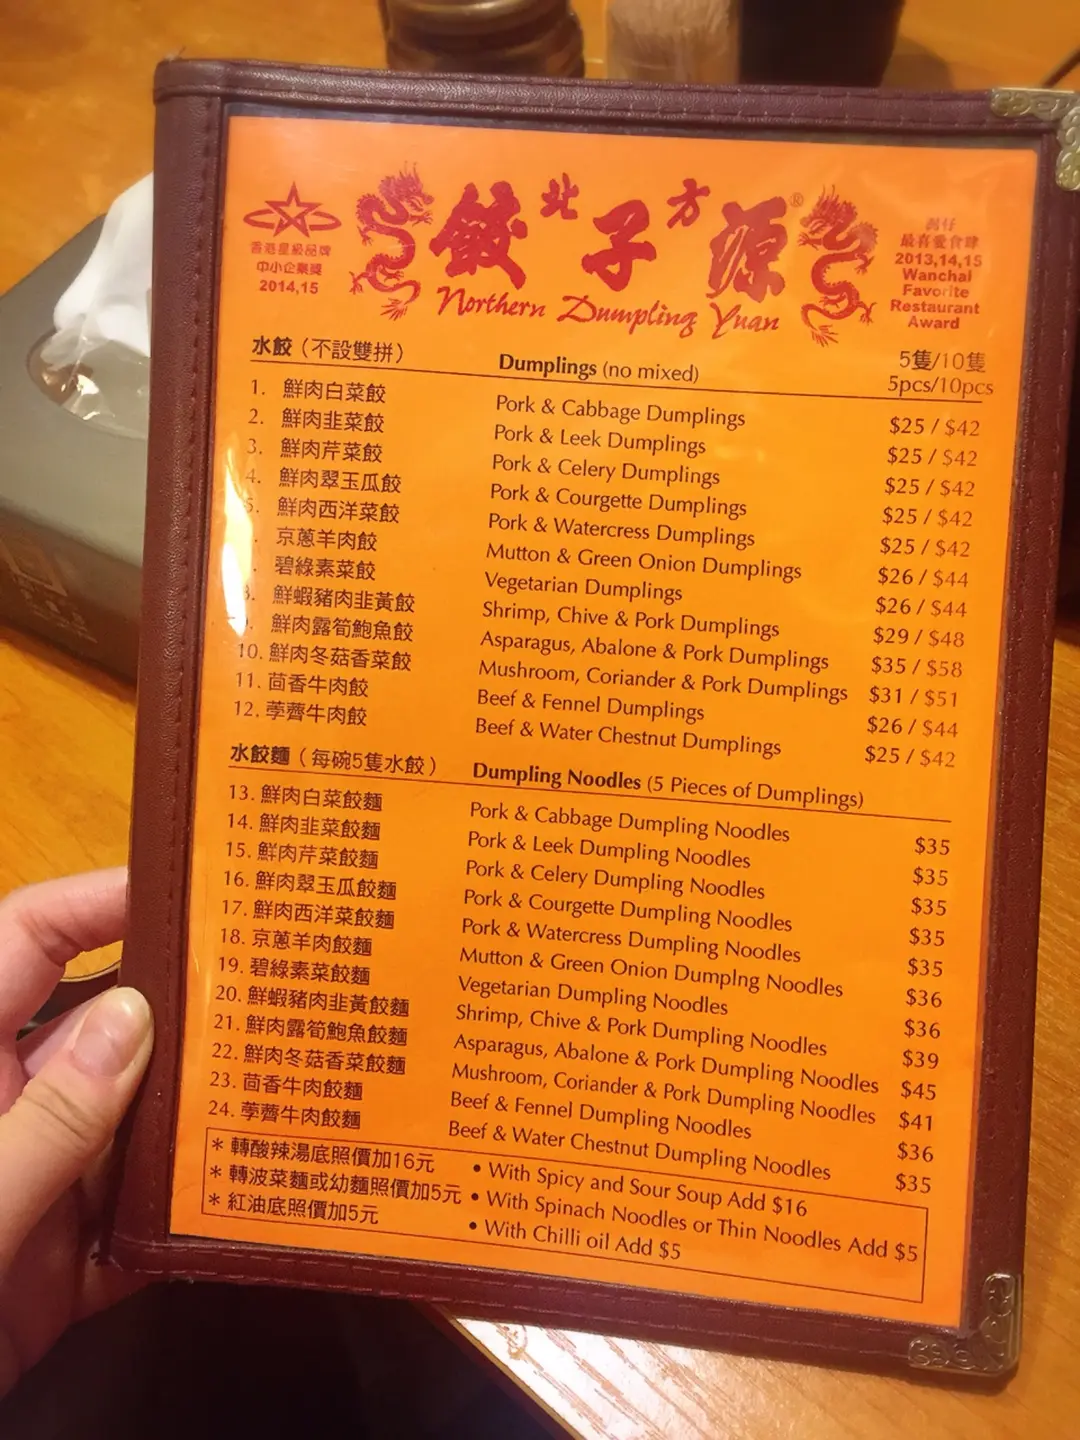 香港星級品牌
中小企業獎
2014,15
餃北子方源®
Northern Dumpling Yuan
灣仔
最喜愛食肆
2013,14,15
Wanchai
Favorite
Restaurant
Award
水餃（不設雙拼） Dumplings (no mixed) 5隻/10隻
5pcs/10pcs
1. 鮮肉白菜餃 Pork & Cabbage Dumplings $25 / $42
2. 鮮肉韭菜餃 Pork & Leek Dumplings $25 / $42
3. 鮮肉芹菜餃 Pork & Celery Dumplings $25 / $42
4. 鮮肉翠玉瓜餃 Pork & Courgette Dumplings $25 / $42
5. 鮮肉西洋菜餃 Pork & Watercress Dumplings $25 / $42
京蔥羊肉餃 Mutton & Green Onion Dumplings $26 / $44
碧綠素菜餃 Vegetarian Dumplings $26 / $44
8. 鮮蝦豬肉韭黃餃 Shrimp, Chive & Pork Dumplings $29 / $48
鮮肉露筍鮑魚餃 Asparagus, Abalone & Pork Dumplings $35 / $58
10. 鮮肉冬菇香菜餃 Mushroom, Coriander & Pork Dumplings $31 / $51
11. 茴香牛肉餃 Beef & Fennel Dumplings $26 / $44
12. 荸薺牛肉餃 Beef & Water Chestnut Dumplings $25 / $42
水餃麵（每碗5隻水餃） Dumpling Noodles (5 Pieces of Dumplings)
13. 鮮肉白菜餃麵 Pork & Cabbage Dumpling Noodles $35
14. 鮮肉韭菜餃麵 Pork & Leek Dumpling Noodles $35
15. 鮮肉芹菜餃麵 Pork & Celery Dumpling Noodles $35
16. 鮮肉翠玉瓜餃麵 Pork & Courgette Dumpling Noodles $35
17. 鮮肉西洋菜餃麵 Pork & Watercress Dumpling Noodles $35
18. 京蔥羊肉餃麵 Mutton & Green Onion Dumplng Noodles $36
19. 碧綠素菜餃麵 Vegetarian Dumpling Noodles $36
20. 鮮蝦豬肉韭黃餃麵 Shrimp, Chive & Pork Dumpling Noodles $39
21. 鮮肉露筍鮑魚餃麵 Asparagus, Abalone & Pork Dumpling Noodles $45
22. 鮮肉冬菇香菜餃麵 Mushroom, Coriander & Pork Dumpling Noodles $41
23. 茴香牛肉餃麵 Beef & Fennel Dumpling Noodles $36
24. 荸薺牛肉餃麵 Beef & Water Chestnut Dumpling Noodles $35
* 轉酸辣湯底照價加16元 • With Spicy and Sour Soup Add $16
* 轉波菜麵或幼麵照價加5元 • With Spinach Noodles or Thin Noodles Add $5
* 紅油底照價加5元 • With Chilli oil Add $5